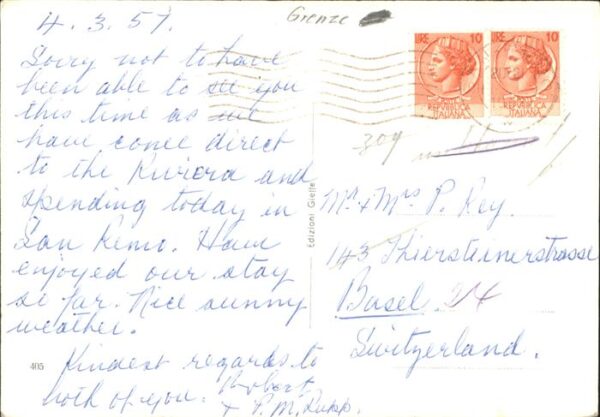 4.3.57.
Sorry not to have
been able to see you
this time as we
have come direct
to the Riviera and
spending today in
San Remo. Have
enjoyed our stay
so far. Nice sunny
weather.
Kindest regards to
both of you. Robert
+ P.M. Rupp.
405
Grenze
LIRE 10
REPVBBLICA
ITALIANA
LIRE 10
REPVBBLICA
ITALIANA
309
Edizioni Gielfe
Mr. + Mrs P. Rey.
143 Thiersteinerstrasse
Basel 24
Switzerland.